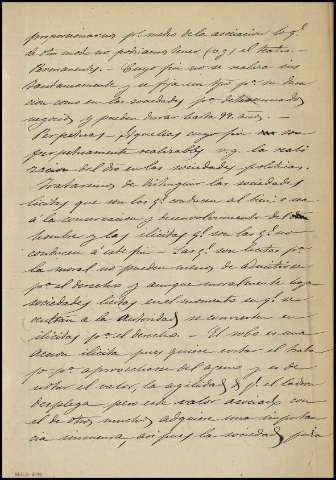 proporcionarnos pr. medio de la asociacion lo q.
de otro modo no podriamos tener (v.g.) el teatro.
Permanentes. - Cuyo fin no se realiza ins
tantaneamente y se fija un pr. su dura
cion como en las sociedades pa. determinados
negocios y pueden durar hasta 99 años.
Perpetuas. - Aquellas cuyo fin son
perpetuamente realizables v.g. la reali
zacion del dro en las sociedades politicas.
Trataremos de distinguir las sociedades
licitas que son las q. conducen al
á la conservacion y desenvolvimiento del
hombre y las ilicitas q. son las q. no
conducen á este fin - Las q. son tratas pr.
la moral no pueden menos de admitirse
pr. el derecho y aunque moralmente haya
sociedades licitas en el momento en q. se
ocultan a la Autoridad se convierten en
ilicitas pr. el derecho. - El robo es una
accion ilicita pues quiere evitar el traba
jo pa. aprovecharse del ageno y es de
notar el valor, la agilidad &. q. el ladron
desplega pero este valor asociado con
el de otros muchos adquiere una importan
cia inmensa, asi pues la sociedad para